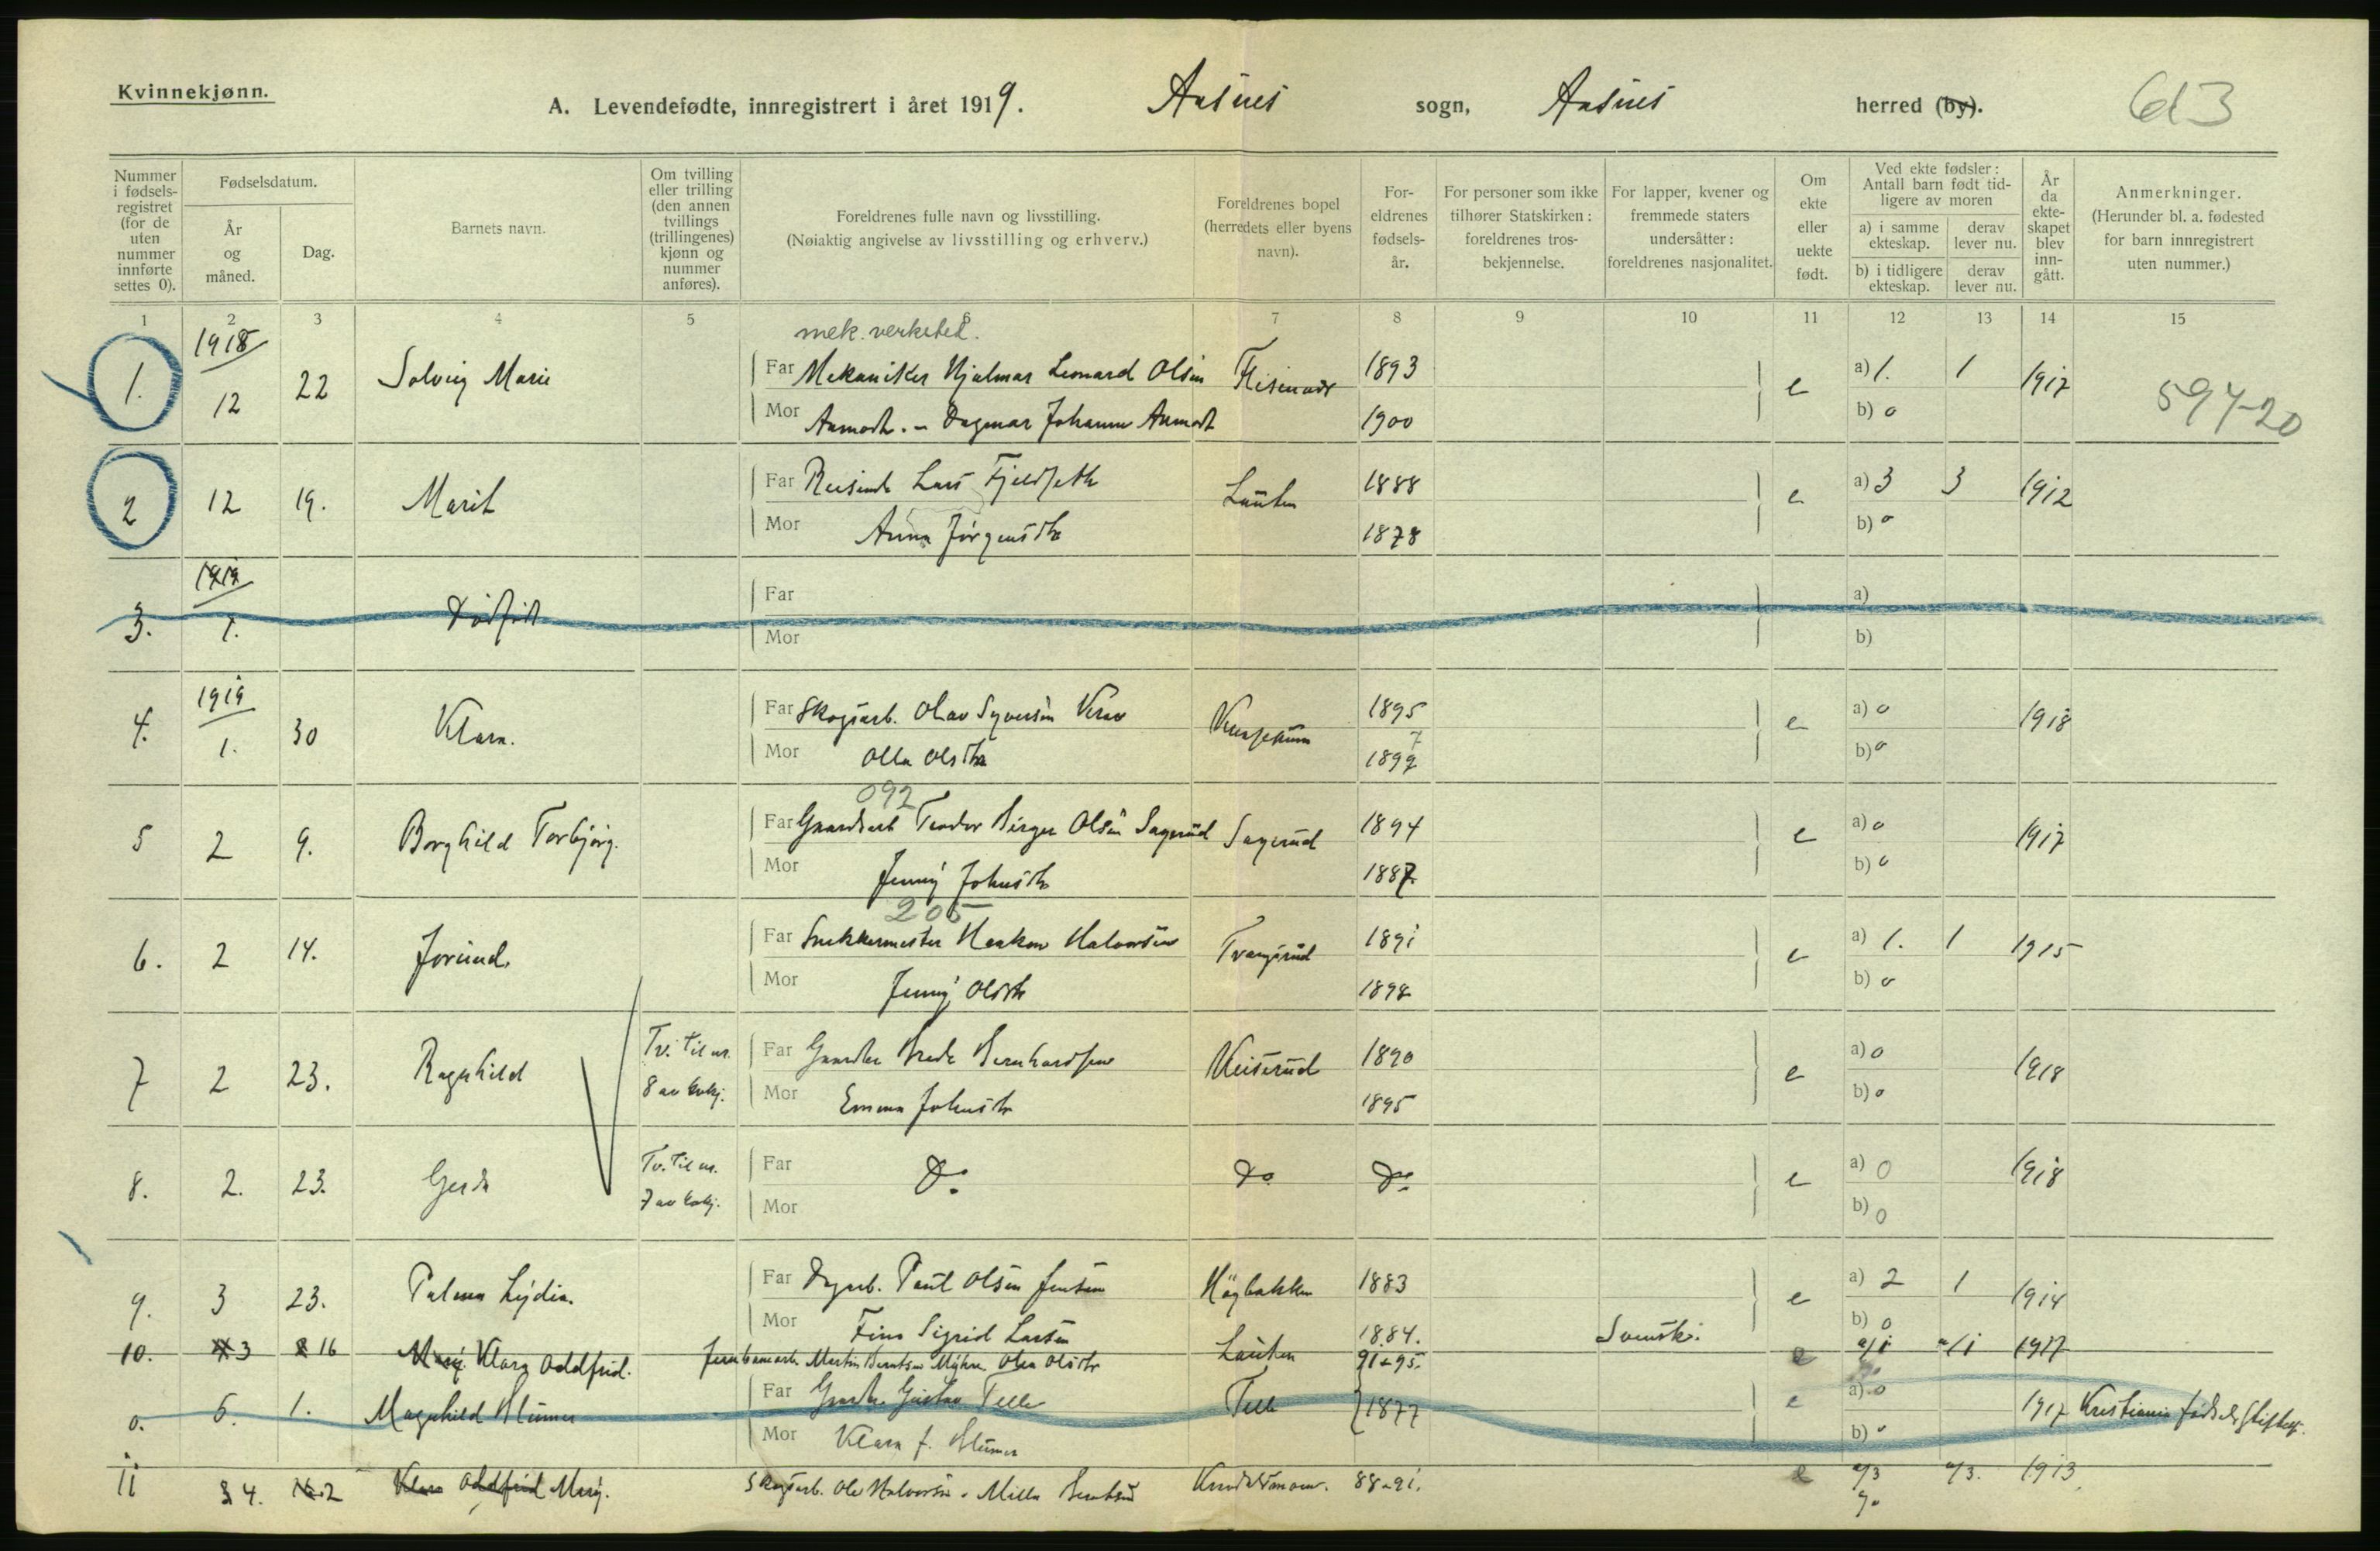 Kvinnekjønn.
A. Levendefødte, innregistrert i året 1919. Aasnes sogn, Aasnes herred (by).
613
Nummer i fødselsregistret (for de uten nummer innførte settes 0).
Fødselsdatum.
År og måned.
Dag.
Barnets navn.
Om tvilling eller trilling (den annen tvillings (trillingenes) kjønn og nummer anføres).
Foreldrenes fulle navn og livsstilling.
(Nøiaktig angivelse av livsstilling og erhverv.)
Foreldrenes bopel (herredets eller byens navn).
For-eldrenes fødsels-år.
For personer som ikke tilhører Statskirken: foreldrenes tros-bekjennelse.
For lapper, kvener og fremmede staters undersåtter: foreldrenes nasjonalitet.
Om ekte eller uekte født.
Ved ekte fødsler: Antall barn født tid-ligere av moren
a) i samme ekteskap.
derav lever nu.
b) i tidligere ekteskap.
derav lever nu.
År da ekte-skapet blev inn-gått.
Anmerkninger.
(Herunder bl. a. fødested for barn innregistrert uten nummer.)
1 2 3 4 5 6 7 8 9 10 11 12 13 14 15
mek. verksted.
1. 1918 12 22 Solveig Marie Far Mekaniker Hjalmar Leonard Olsen 1893 e a) 1. 1 1917
Mor Aamodt. - Dagmar Johanne Aamodt 1900 b) 0
594-20
2 12 19. Marit Far Reisende Lars Fjeldseth Lauten 1888 e a) 3 3 1912
Mor Anna Jørgensdtr 1878 b) 0
3. 1919 1. Dødfødt Far a)
Mor b)
4. 1919 1. 30 Klara. Far Skogsarb. Olav Syversen 1895 e a) 0 1918
Mor Olla Olsdtr 1897 b) 0
092
5 2 9. Borghild Torbjørg. Far Gaardsarb Teodor Birger Olsen Sagerud Sagerud 1894 e a) 0 1917
Mor Jenny Johnsdtr 1887 b) 0
205
6. 2 14. Jorund. Far Snekkermester Haakon Halvorsen Tvangsrud 1891 e a) 1. 1 1915
Mor Jenny Olsdtr 1898 b) 0
7 2 23. Ragnhild Tv. til nr. 8 av kvkj. Far Gaardbr Brede Bernhardsen 1890 e a) 0 1918
Mor Emma Johnsdtr 1895 b) 0
8. 2. 23. Gerda Tv. til nr. 7 av kvkj. Far Do Do Do e a) 0 1918
Mor b) 0
9. 3 23. Palma Lydia. Far Dagarb. Paul Olsen Jensen Høgbakken 1883 e a) 2 1 1914
Mor Fina Sigrid Larsen 1884. Svensk. b) 0
10. 3 16 Klara Oddfrid. Jernbanearb. Martin Berntsen Myhre. Olea Olsdtr Lauten 91-95. e a/1 a/1 1917
0. 6. 1. Magnhild Blumer Far Gaardbr. Gustav Telle Telle 1877 e a) 0 1917 Kristiania fødselsstiftelse.
Mor Klara f. Blumer b) 0
11 4. 2 Klara Oddfrid Mary. Skogsarb. Ole Halvorsen - Milla Berntsen 88-91. e a/3 a/3. 1913.